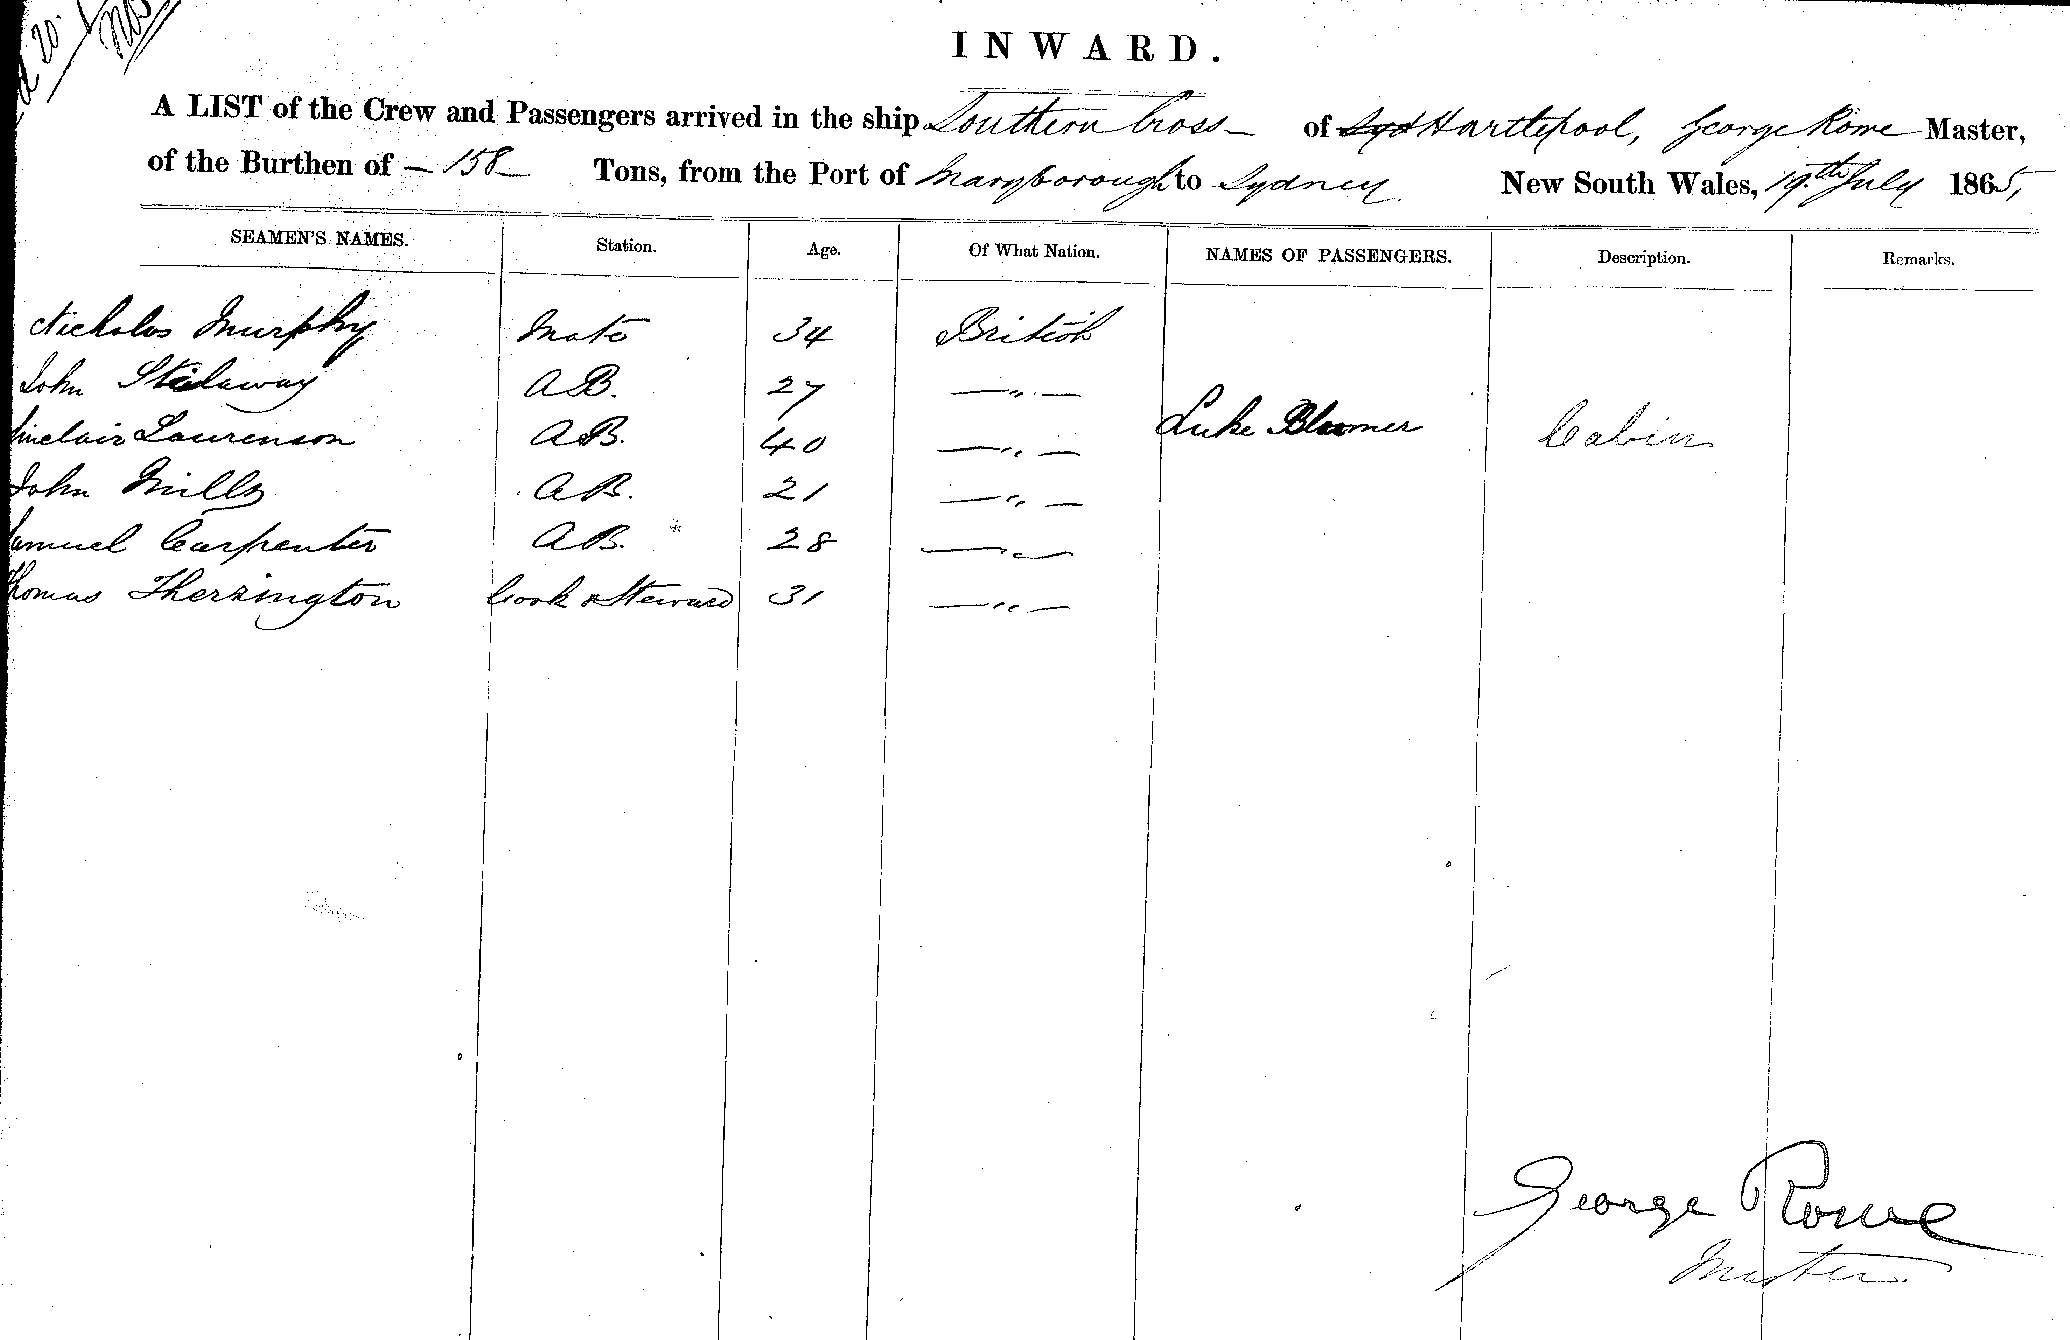 20
INWARD.
A LIST of the Crew and Passengers arrived in the ship Southern Cross of Syd Hartlepool, George Rome Master,
of the Burthen of 158 Tons, from the Port of Maryborough to Sydney New South Wales, 19th July 1865,
SEAMEN'S NAMES. Station. Age. Of What Nation. NAMES OF PASSENGERS. Description. Remarks.
Nicholas Murphy Mate 34 British
John A.B. 27 — " —
Sinclair Laurenson A.B. 40 — " — Luke Bloomer Cabin
John Mills A.B. 21 — " —
Samuel Carpenter A.B. 28 — " —
Thomas Cook & Steward 31 — " —
George Rome
Master